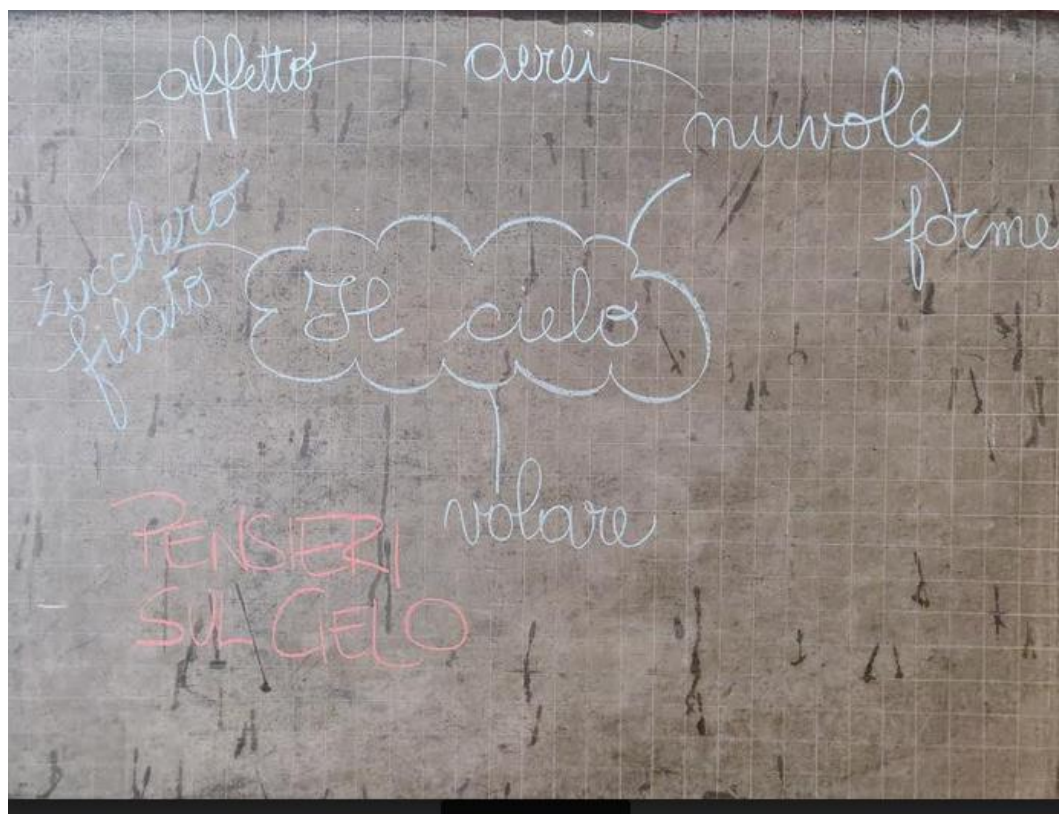 affetto aerei
nuvole
forme
zucchero
filato
Il cielo
volare
PENSIERI
SUL CIELO